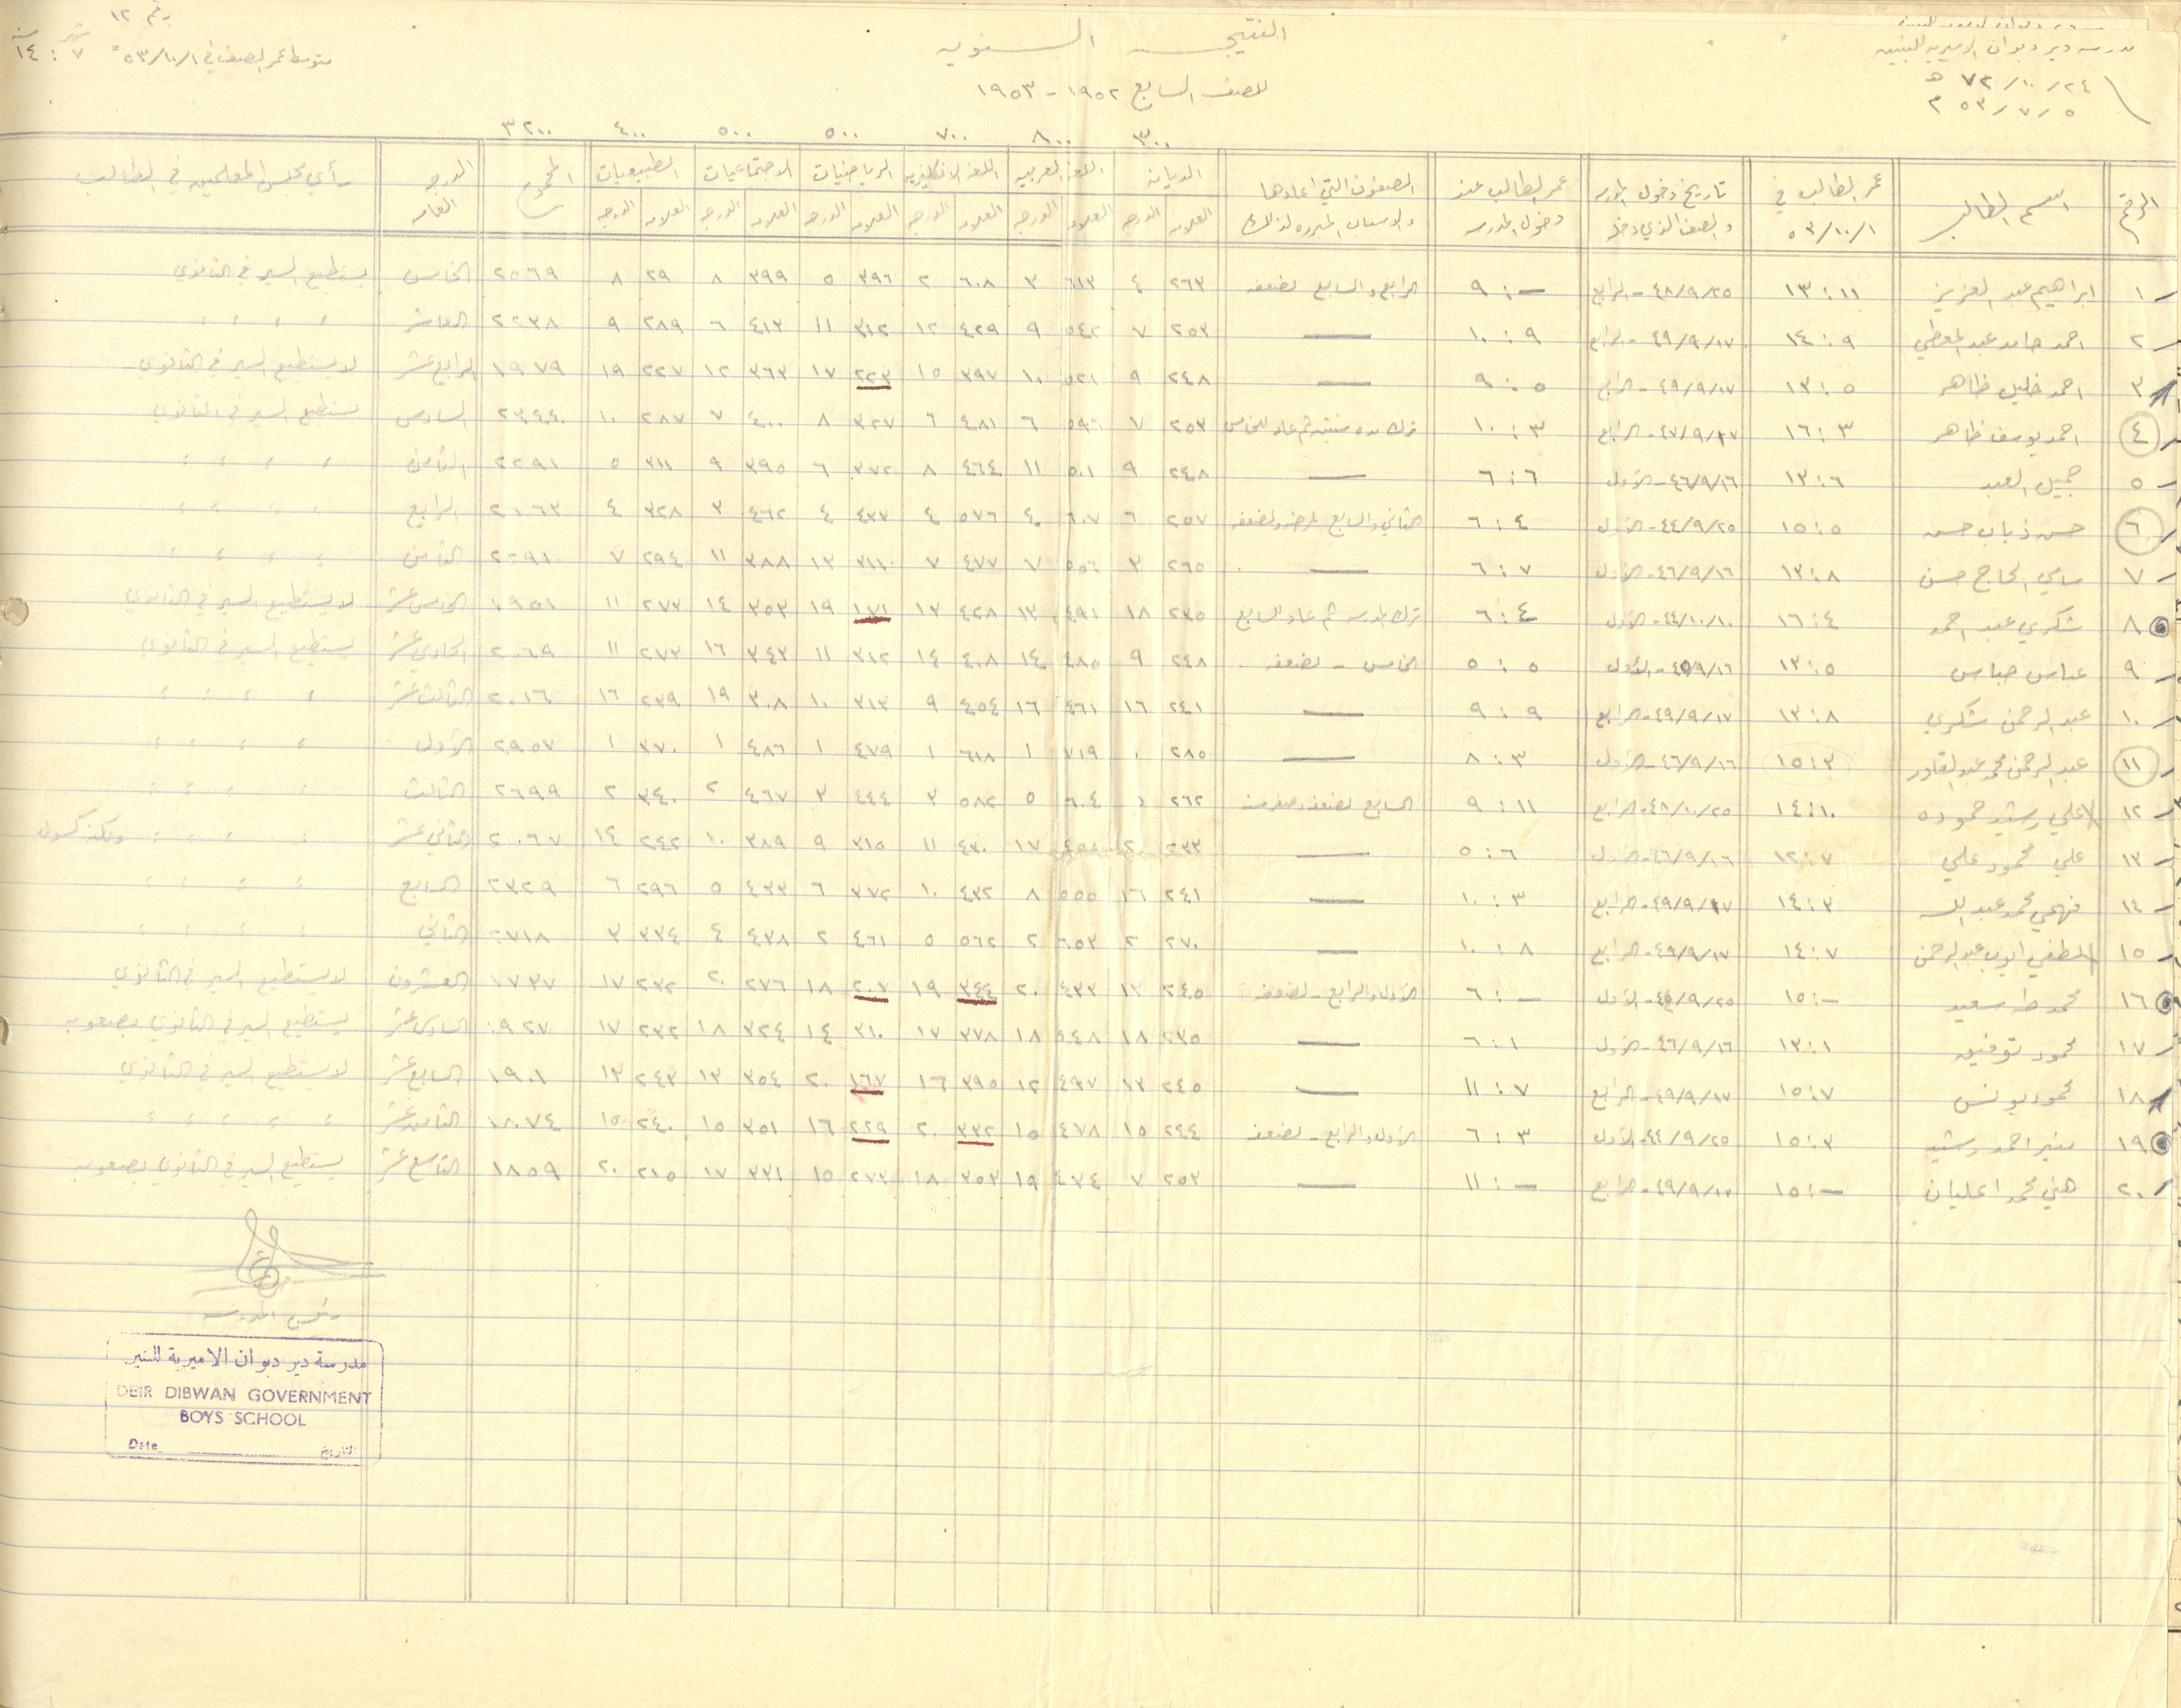 رقم ١٢
مدرسة دير دبوان الاميرية للبنين
٢٤/١٠/٧٢ هـ
٥/٧/٥٣ م
النتيجة السنوية
للصف السابع ١٩٥٢ - ١٩٥٣
متوسط عمر الصف في ٥٣/١٠/١ ٧ : ١٤
شهر سنة
٣٠٠ ٨٠٠ ٧٠٠ ٥٠٠ ٥٠٠ ٤٠٠ ٣٢٠٠
الرقم اسم الطالب عمر الطالب في ٥٣/١٠/١ تاريخ دخول المدرسة والصف الذي دخله عمر الطالب عند دخول المدرسة الصفوف التي اعادها والاسباب المبررة لذلك الديانة اللغة العربية اللغة الانكليزية الرياضيات الاجتماعيات الطبيعيات المجموع الدرجة العامة رأي مجلس المعلمين في الطالب
العلامة الدرجة العلامة الدرجة العلامة الدرجة العلامة الدرجة العلامة الدرجة العلامة الدرجة
١ ابراهيم عبد العزيز ١٣:١١ ٤٨/٩/٢٥ - الرابع ٩:— الرابع والسابع لضعفه ٢٦٣ ٤ ٦١٣ ٣ ٦٠٨ ٢ ٣٩٦ ٥ ٣٩٩ ٨ ٢٩٠ ٨ ٢٥٦٩ الخامس يستطيع السير في الثانوي
٢ احمد حامد عبد المعطي ١٤:٩ ٤٩/٩/١٧ - الرابع ١٠:٩ — ٢٥٣ ٧ ٥٤٢ ٩ ٤٢٩ ١٢ ٣١٢ ١١ ٤١٣ ٦ ٢٨٩ ٩ ٢٢٣٨ العاشر " " " "
٣ احمد خليل ظاهر ١٣:٥ ٤٩/٩/١٧ - الرابع ٩:٥ — ٢٤٨ ٩ ٥٢١ ١٠ ٣٩٧ ١٥ ٢٢٣ ١٧ ٣٦٣ ١٢ ٢٢٧ ١٩ ١٩٧٩ الرابع عشر لا يستطيع السير في الثانوي
٤ احمد يوسف ظاهر ١٦:٣ ٤٧/٩/١٧ - الرابع ١٠:٣ ترك مدة سنتين ثم عاد للخامس ٢٥٣ ٧ ٥٩٦ ٦ ٤٨١ ٦ ٣٢٧ ٨ ٤٠٠ ٧ ٢٨٧ ١٠ ٢٣٤٤ السادس يستطيع السير في الثانوي
٥ جميل العبد ١٣:٦ ٤٦/٩/١٦ - الأول ٦:٦ — ٢٤٨ ٩ ٥٠١ ١١ ٤٦٤ ٨ ٣٧٢ ٦ ٣٩٥ ٩ ٣١١ ٥ ٢٢٩١ الثامن " " " "
٦ حسن ذياب حسن ١٥:٥ ٤٤/٩/٢٥ - الأول ٦:٤ الثاني والسابع لمرضه ولضعفه ٢٥٧ ٦ ٦٠٧ ٤ ٥٧٦ ٤ ٤٣٧ ٤ ٤٦٢ ٣ ٣٢٨ ٤ الرابع " " " "
٧ سامي الحاج حسن ١٣:٨ ٤٦/٩/١٦ - الأول ٦:٧ — ٢٦٥ ٣ ٥٥٦ ٧ ٤٧٧ ٧ ٣١١ ١٣ ٣٨٨ ١١ ٢٩٤ ٧ ٢٢٩١ الثامن " " " "
٨ شكري عبد احمد ١٦:٤ ٤٤/١٠/١٠ - الأول ٦:٤ ترك المدرسة ثم عاد للسابع ٢٣٥ ١٨ ٤٩١ ١٣ ٤٢٨ ١٣ ١٧١ ١٩ ٣٥٣ ١٤ ٢٧٣ ١١ ١٩٥١ الخامس عشر لا يستطيع السير في الثانوي
٩ عباس عباس ١٣:٥ ٤٥/٩/١٦ - الأول ٥:٥ الخامس - لضعفه ٢٤٨ ٩ ٤٨٥ ١٤ ٤٠٨ ١٤ ٣١٢ ١١ ٣٤٣ ١٦ ٢٧٣ ١١ ٢٠٦٩ الحادي عشر يستطيع السير في الثانوي
١٠ عبد الرحمن شكري ١٣:٨ ٤٩/٩/١٧ - الرابع ٩:٩ — ٢٤١ ١٦ ٤٦١ ١٦ ٤٥٤ ٩ ٣١٣ ١٠ ٣٠٨ ١٩ ٢٣٩ ١٦ ٢٠١٦ الثالث عشر " " " "
١١ عبد الرحمن محمد عبد القادر ١٥:٣ ٤٦/٩/١٦ - الأول ٨:٣ — ٢٨٥ ١ ٧١٩ ١ ٦١٨ ١ ٤٧٩ ١ ٤٨٦ ١ ٣٧٠ ١ ٢٩٥٧ الأول " " " "
١٢ علي رشيد حموده ١٤:١٠ ٤٨/١٠/٢٥ - الرابع ٩:١١ السابع لضعفه ٢٦٢ ٥ ٦٠٤ ٥ ٥٨٢ ٣ ٤٤٤ ٣ ٤٦٧ ٢ ٣٤٠ ٢ ٢٦٩٩ الثالث " " " "
١٣ علي محمود علي ١٢:٧ ٤٦/٩/١٦ - الأول ٥:٦ — ٢٣٣ ٢٠ ٤٥٨ ١٧ ٤٣٠ ١١ ٣١٥ ٩ ٣٨٩ ١٠ ٢٤٢ ١٤ ٢٠٦٧ الثاني عشر " " " " ولكنه كسول
١٤ فهمي محمد عبد الله ١٤:٣ ٤٩/٩/١٧ - الرابع ١٠:٣ — ٢٤١ ١٦ ٥٥٥ ٨ ٤٣٢ ١٠ ٣٧٢ ٦ ٤٣٣ ٥ ٢٩٦ ٦ ٢٣٢٩ السابع " " " "
١٥ لطفي ايوب عبد الرحمن ١٤:٧ ٤٩/٩/١٧ - الرابع ١٠:٨ — ٢٧٠ ٢ ٦٥٣ ٢ ٥٦٢ ٥ ٤٦١ ٢ ٤٣٨ ٤ ٣٣٤ ٣ ٢٧١٨ الثاني " " " "
١٦ محمد طه سعيد ١٥:— ٤٤/٩/٢٥ - الأول ٦:— الأول والرابع - لضعفه ٢٤٥ ١٣ ٤٣٣ ٢٠ ٣٤٤ ١٩ ٢٠٧ ١٨ ٢٧٦ ٢٠ ٢٣٢ ١٧ ١٧٣٧ العشرون لا يستطيع السير في الثانوي
١٧ محمود توفيق ١٣:١ ٤٦/٩/١٦ - الأول ٦:١ — ٢٣٥ ١٨ ٤٤٨ ١٨ ٣٧٨ ١٧ ٣١٠ ١٤ ٣٢٤ ١٨ ٢٣٢ ١٧ ١٩٢٧ السادس عشر يستطيع السير في الثانوي بصعوبة
١٨ محمود يونس ١٥:٧ ٤٩/٩/١٧ - الرابع ١١:٧ — ٢٤٥ ١٣ ٤٩٧ ١٢ ٣٩٥ ١٦ ١٦٧ ٢٠ ٣٥٤ ١٣ ٢٤٣ ١٣ ١٩٠١ السابع عشر لا يستطيع السير في الثانوي
١٩ منير احمد رشيد ١٥:٣ ٤٤/٩/٢٥ - الأول ٦:٣ الأول والرابع - لضعفه ٢٤٤ ١٥ ٤٧٨ ١٥ ٣٣٢ ٢٠ ٢٢٩ ١٦ ٣٥١ ١٥ ٢٤٠ ١٥ ١٨٧٤ الثامن عشر " " " " "
٢٠ هني محمد اعليان ١٥:— ٤٩/٩/١٧ - الرابع ١١:— — ٢٥٣ ٧ ٤٣٤ ١٩ ٣٥٣ ١٨ ٢٧٣ ١٥ ٣٣١ ١٧ ٢١٥ ٢٠ ١٨٥٩ التاسع عشر يستطيع السير في الثانوي بصعوبة
رئيس المدرسة
مدرسة دير دبوان الاميرية للبنين
DEIR DIBWAN GOVERNMENT
BOYS SCHOOL
Date التاريخ